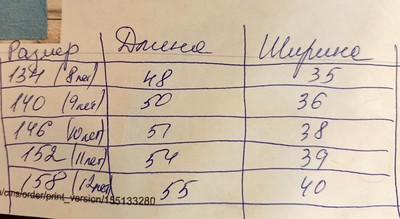 Размер Длина Ширина
134 (8лет) 48 35
140 (9лет) 50 36
146 (10лет) 51 38
152 (11лет) 54 39
158 (12лет) 55 40
/cms/order/print_version/155133280